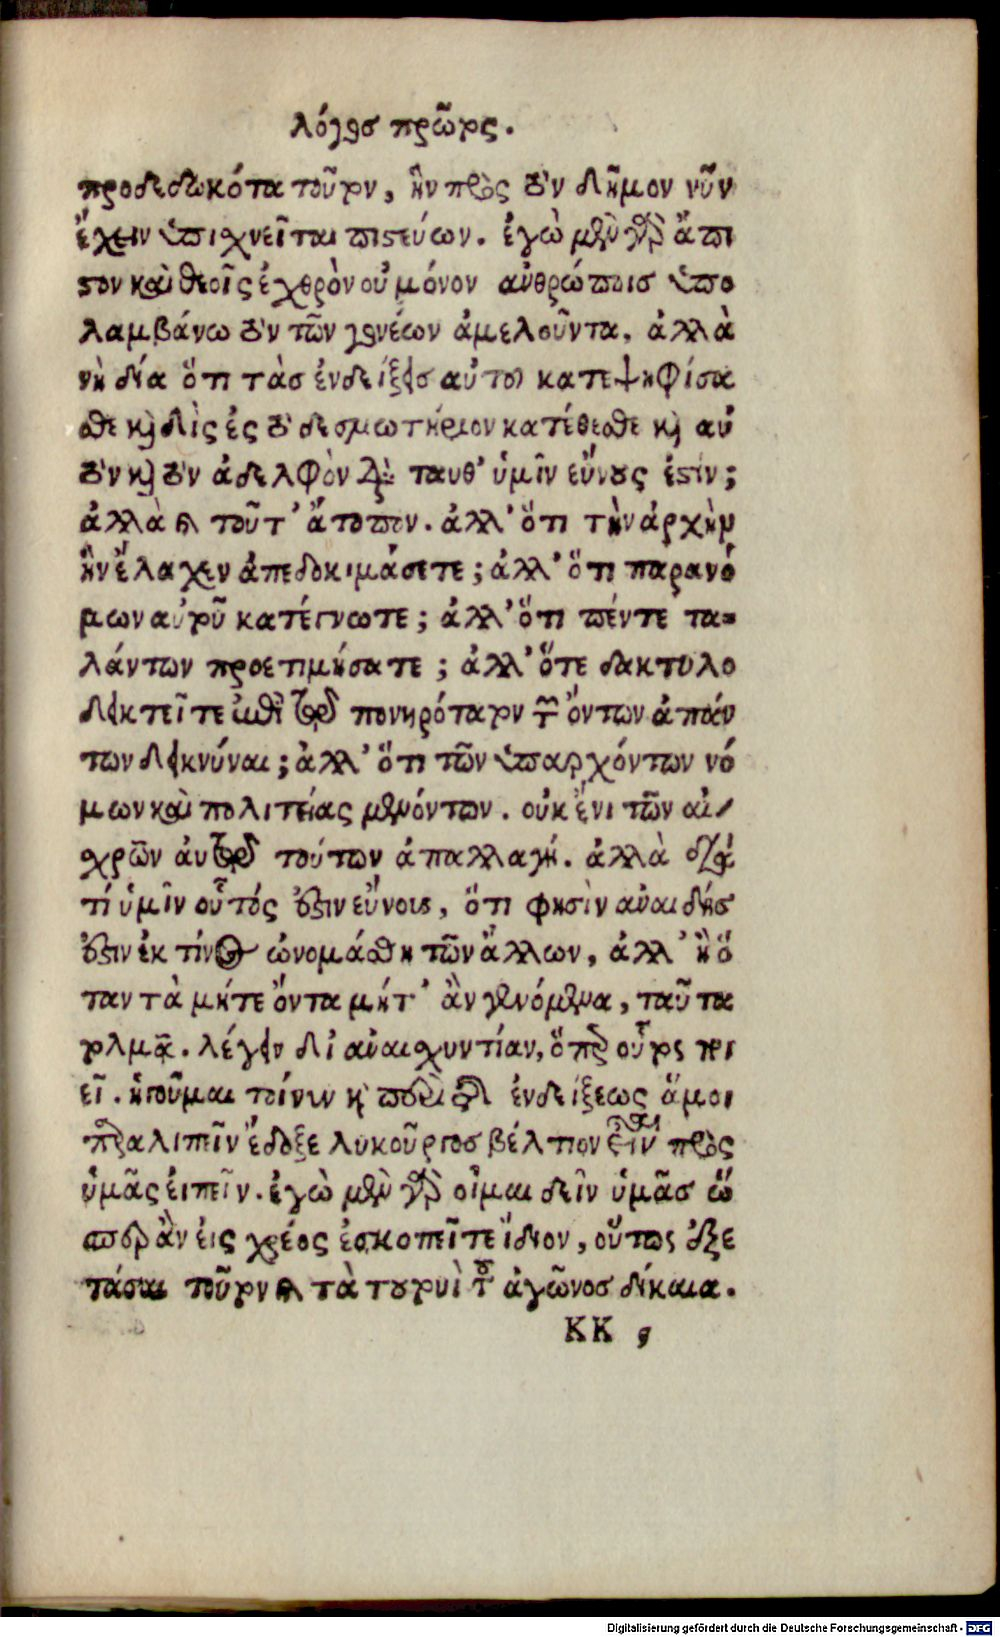 λόγος πρῶτος.
προδεδωκότα τοῦτον, ἣν πρὸς τὸν δῆμον νῦν
ἔχειν ὑπισχνεῖται πιστεύων. ἐγὼ μὲν γὰρ ἄπι
στον καὶ θεοῖς ἐχθρὸν οὐ μόνον ἀνθρώποις ὑπο
λαμβάνω τὸν τῶν γονέων ἀμελοῦντα. ἀλλὰ
νὴ δία ὅτι τὰς ἐνδείξεις αὐτοῦ κατεψηφίσα
σθε καὶ δὶς ἐς τὸ δεσμωτήριον κατέθεσθε καὶ αὐ
τὸν καὶ τὸν ἀδελφὸν διὰ ταυθ' ὑμῖν εὔνους ἐστίν;
ἀλλὰ καὶ τοῦτ' ἄτοπον. ἀλλ' ὅτι τὴν ἀρχὴν
ἣν ἔλαχεν ἀπεδοκιμάσετε; ἀλλ' ὅτι παρανό
μων αὐτοῦ κατέγνωτε; ἀλλ' ὅτι πέντε τα-
λάντων προετιμήσατε; ἀλλ' ὅτε δακτυλο
δεικτεῖτε ἐπὶ τῷ πονηρότατον τῶν ὄντων ἁπάν
των δεικνύναι; ἀλλ' ὅτι τῶν ὑπαρχόντων νό
μων καὶ πολιτείας μενόντων. οὐκ ἔνι τῶν αἰ
σχρῶν αὐτῷ τούτων ἀπαλλαγή. ἀλλὰ διὰ
τί ὑμῖν οὗτός ἐστιν εὔνους, ὅτι φησὶν ἀναιδής
ἐστιν ἐκ τίνος ὠνομάσθη τῶν ἄλλων, ἀλλ' ἢ ὅ
ταν τὰ μήτε ὄντα μήτ' ἂν γενόμενα, ταῦτα
τολμᾷ. λέγειν δι' ἀναισχυντίαν, ὅπερ οὗτος ποι
εῖ. ἡγοῦμαι τοίνυν καὶ περὶ τῆς ἐνδείξεως ἅ μοι
παραλιπεῖν ἔδοξε λυκοῦργος βέλτιον εἶναι πρὸς
ὑμᾶς εἰπεῖν. ἐγὼ μὲν γὰρ οἶμαι δεῖν ὑμᾶς ὥ
σπερ ἂν εἰς χρέος ἐσκοπεῖτε ἴδιον, οὕτως ἐξε
τάσαι τοῦτον καὶ τὰ τουτονὶ τοῦ ἀγῶνος δίκαια.
KK